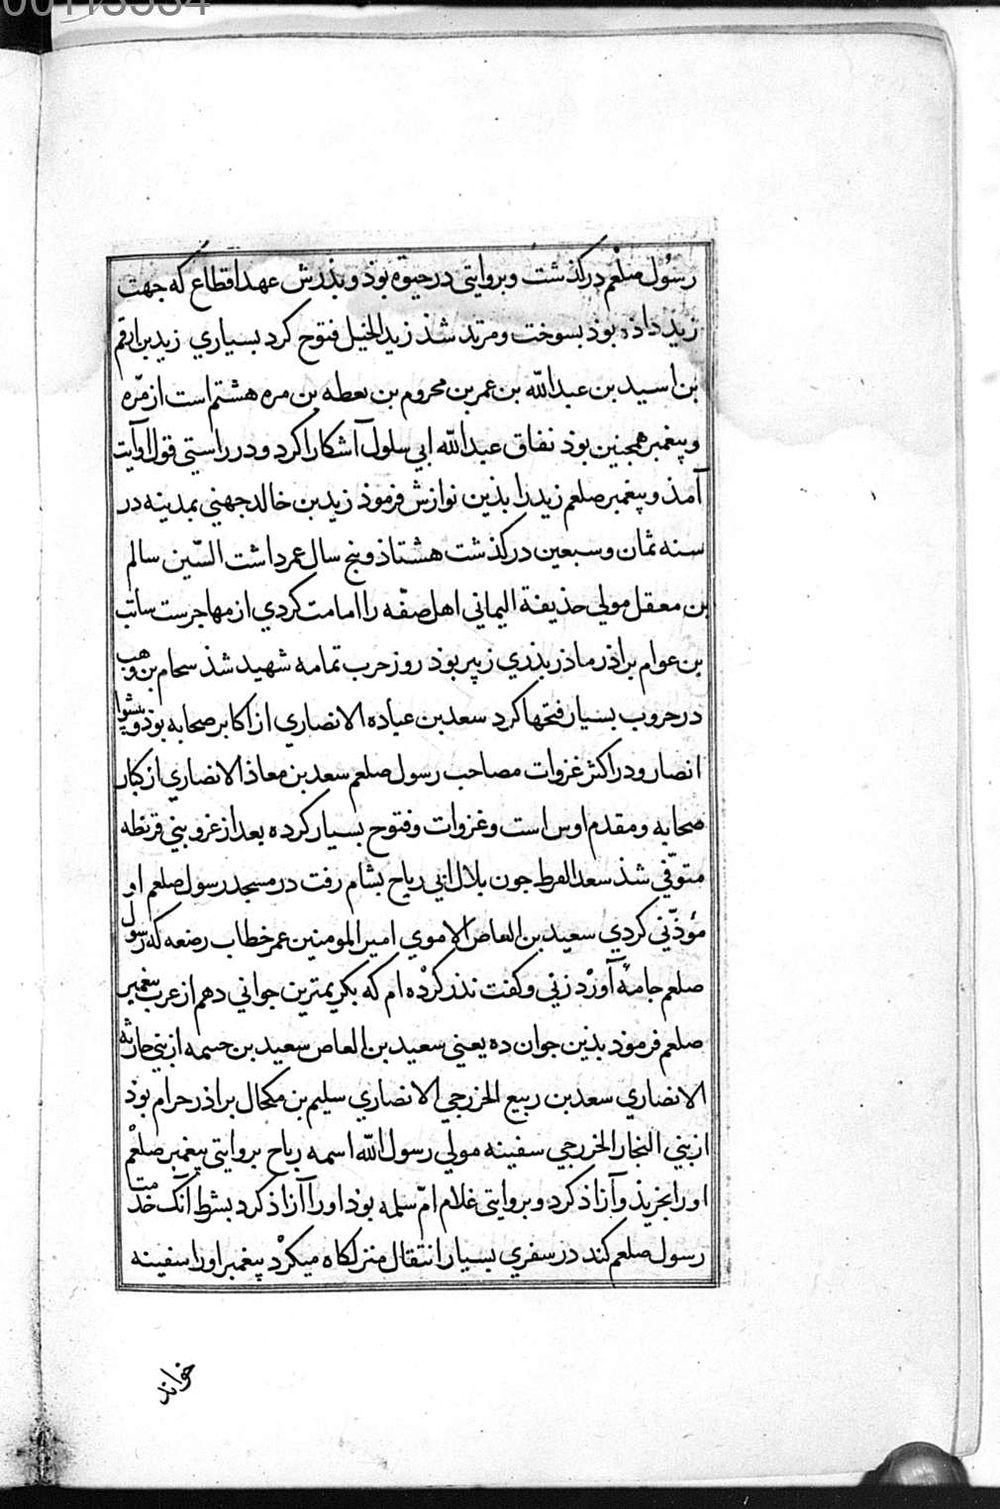 رسول صلعم درکذشت و بروایتی در حیوة بوذ و بذرش عهد اقطاع که جهت
زید داذه بوذ بسوخت و مرتد شذ زید الخیل فتوح کرد بسیاري زید بن ارقم
بن اسید بن عبد الله بن عمر بن محروم بن نعطه بن مره هشتم است از مرّه
و پیغمبر همجنین بوذ نفاق عبد الله ابي سلول آشکارا کرد و در راستی قول او آیت
آمذ و پیغمبر صلعم زید را بذین نوازش فرموذ زید بن خالد جهني بمدینه در
سنه ثمان و سبعین درکذشت هشتاذ و پنج سال عمر داشت السّین سالم
بن معقل مولي حذیفة الیماني اهل صفّه را امامت کردي از مهاجرست سائب
بن عوام براذر ماذر بذري زبیر بوذ روز حرب تمامه شهید شذ سحام بن وهب
در حروب بسیار فتحها کرد سعد بن عباده الانصاري از اکابر صحابه بوذ و پیشوا
انصار و در اکثر غزوات مصاحب رسول صلعم سعد بن معاذ الانصاري از کبار
صحابه و مقدم اوس است و غزوات و فتوح بسیار کرده بعد از غزو بني قریظه
متوفّي شذ سعد القرط جون بلال ابي رباح بشام رفت در مسجد رسول صلعم او
مؤذّني کردي سعید بن العاص الاموي امیر المومنین عمر خطاب رضعه که رسول
صلعم جامهٔ آورد زني و کفت نذر کرده ام که بکریمترین جواني دهم از عرب پیغمبر
صلعم فرموذ بذین جوان ده یعني سعید بن العاص سعید بن حسمه از بني حارثه
الانصاري سعد بن ربیع الخزرجي الانصاري سلیم بن مکحال براذر حرام بوذ
از بني النجار الخزرجي سفینه مولي رسول الله اسمه رباح بروایتی پیغمبر صلعم
او را بخریذ و آزاذ کرد و بروایتی غلام امّ سلمه بوذ او را آزاذ کرد بشرط آنک خدمت
رسول صلعم کند در سفري بسیار انتقال منزلکاه میکرد پیغمبر او را سفینه
خواند